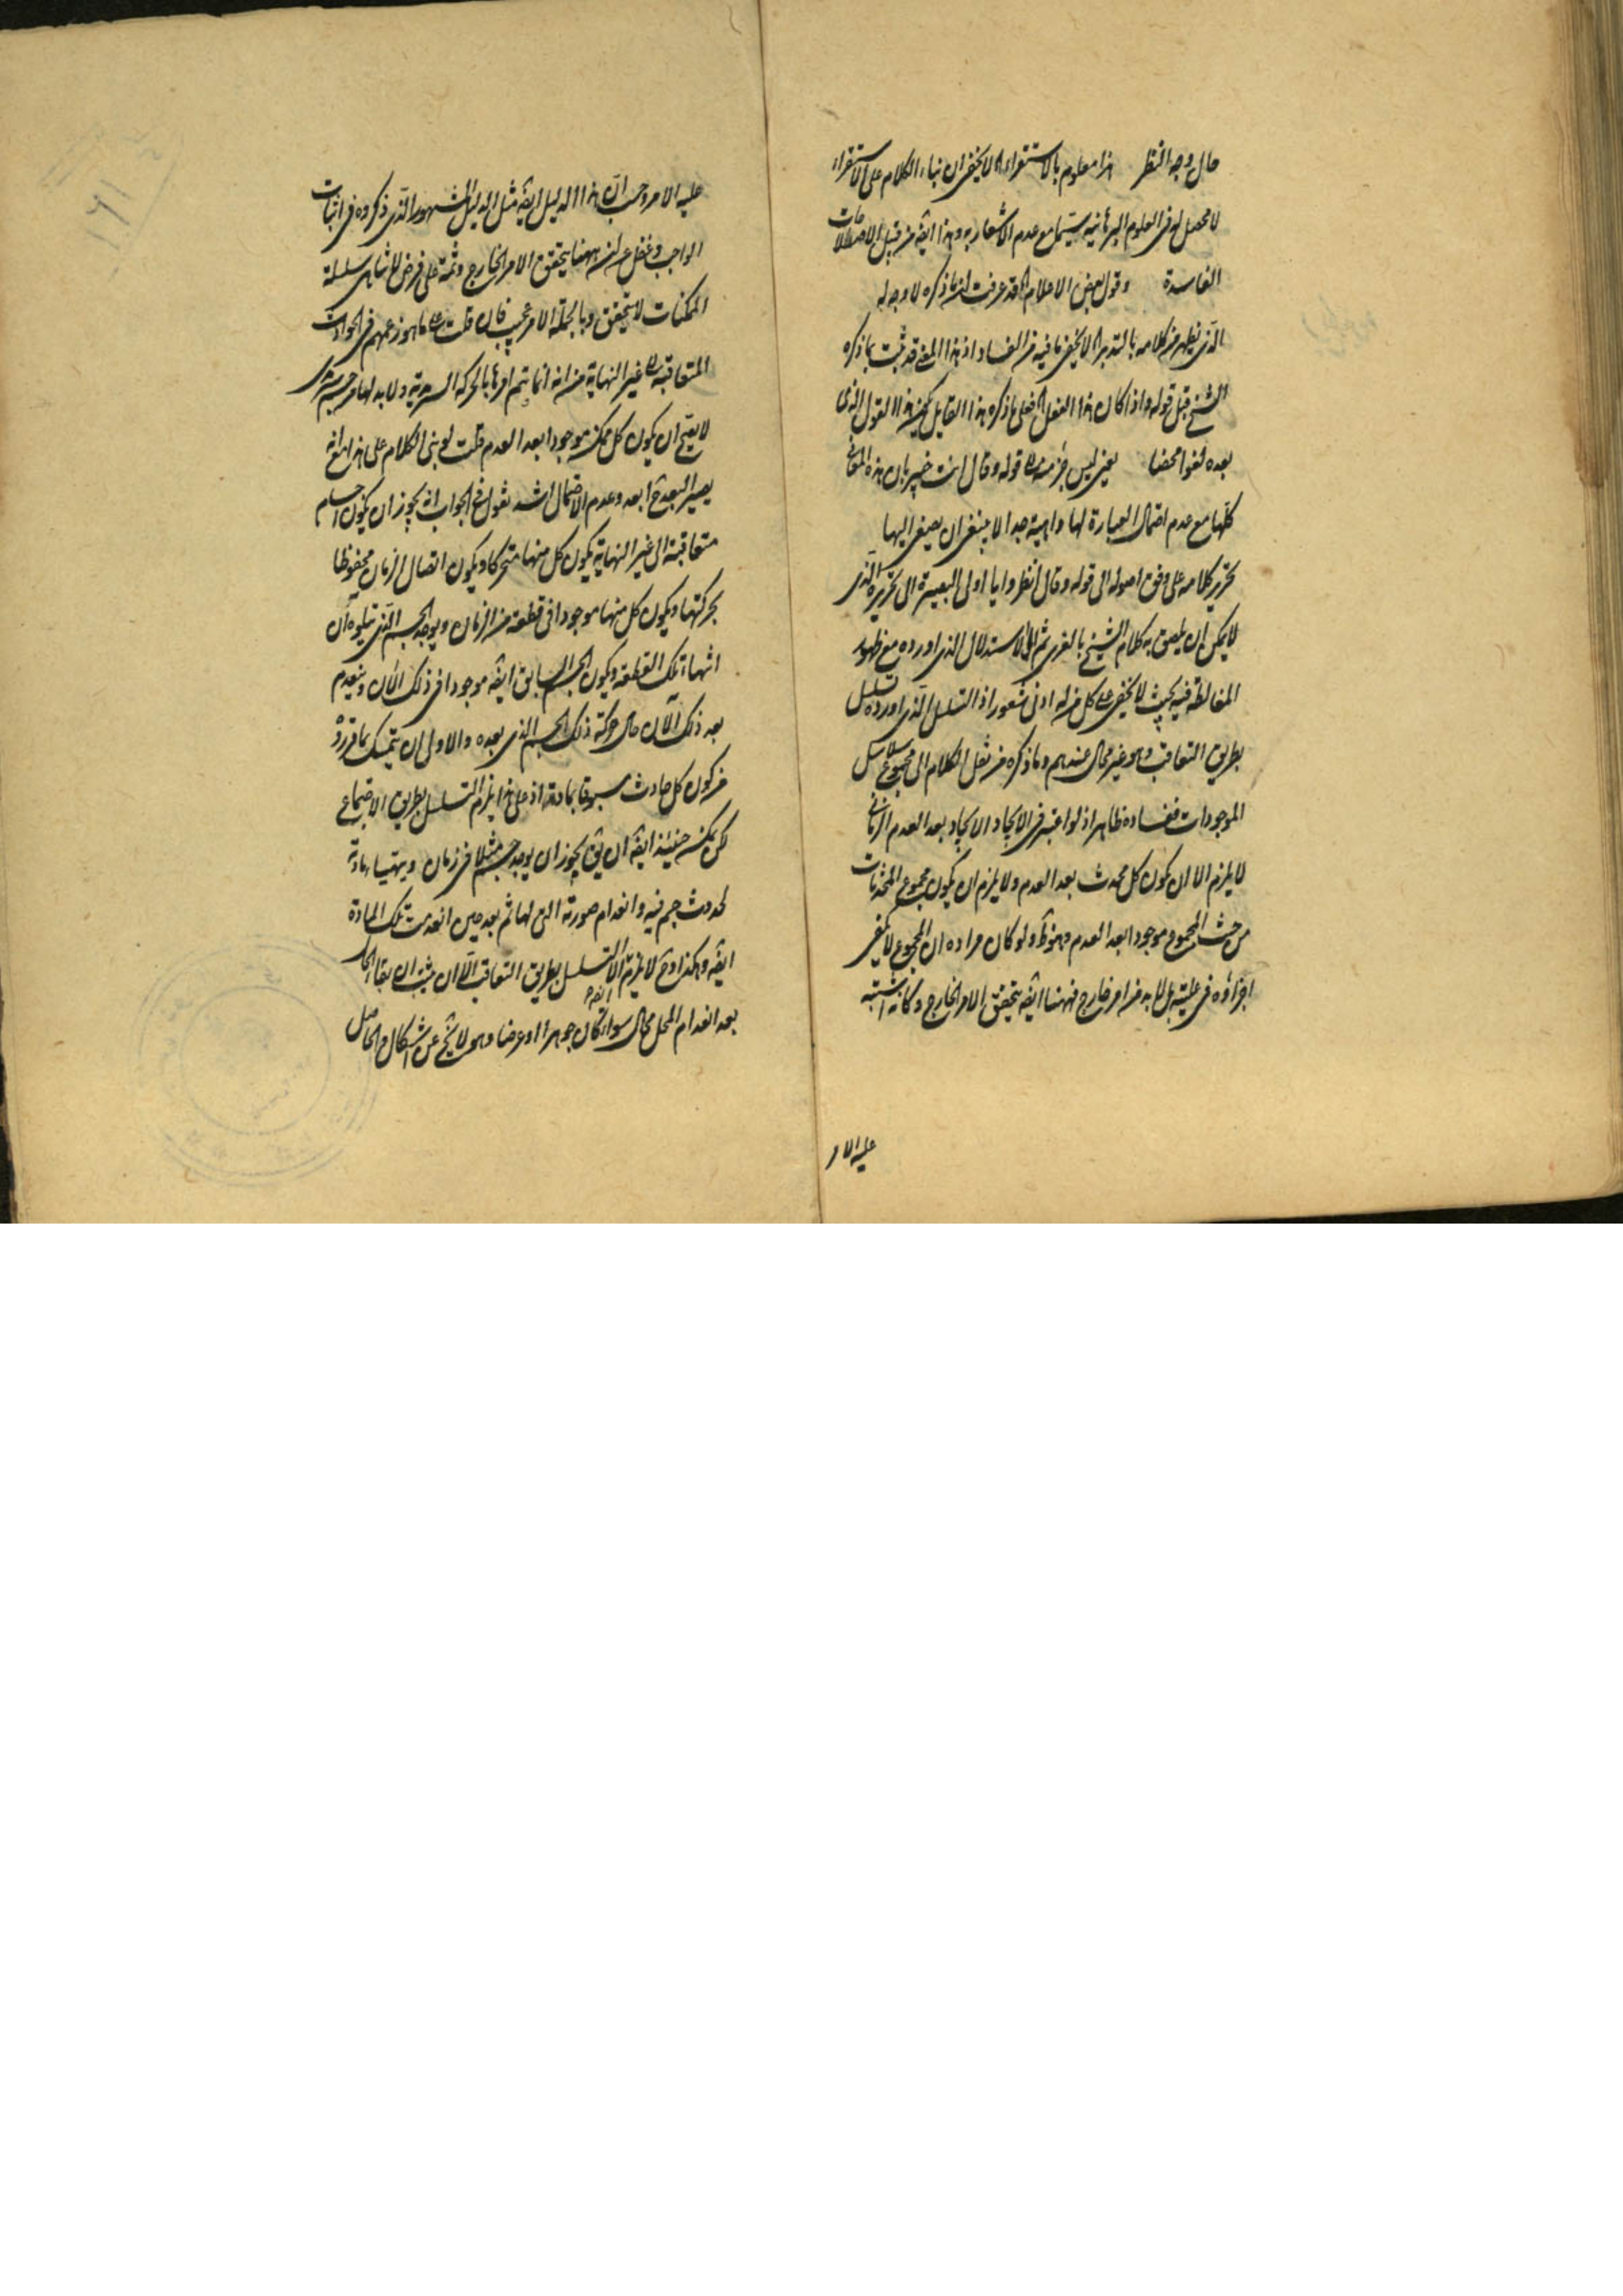 حال وجه النظر هذا معلوم بالاستقراء اه لا يخفى ان بناء الكلام على الاستقراء
لا محصل له فى العلوم البرهانية سيما مع عدم الاشعار به وهذا ايضا من قبيل الاصطلاحات
الفاسدة وقول بعض الاعلام اه قد عرفت ان ما ذكره لا وجه له
الذى يظهر من كلامه بالتدبر اه لا يخفى ما فيه من الفساد اذ هذا المعنى قد ثبت بما ذكره
الشيخ قبل قوله واذا كان هذا الفعل اه فعلى ما ذكره هذا القايل يكون هذا القول الذى
بعده لغوا محضا يعنى ليس جزء منه قوله وقال انت خبير بان هذه المعانى
كلها مع عدم احتمال العبارة لها واهية جدا لا ينبغى ان يصغى اليها
تحرير كلامه على وفق اصوله الى قوله وقال انظروا يا اولى البصيرة الى تحريره الذى
لا يمكن ان يلصق به كلام الشيخ بالغرى ثم الى الاستدلال الذى اورده مع ظهور
المغالطة فيه بحيث لا يخفى على كل من له ادنى شعور اذ التسلسل الذى اورده تسلسل
بطريق التعاقب وهو غير محال عندهم وما ذكره من نقل الكلام الى مجموع سلاسل
الموجودات ففساده ظاهر اذ لو اعتبر فى الايجاد الايجاد بعد العدم الزمانى
لا يلزم الا ان يكون كل محدث بعد العدم ولا يلزم ان يكون مجموع المحدثات
من حيث المجموع موجودا بعد العدم وهو ظ ولو كان مراده ان المجموع لا يكفى
اجزاؤه فى علته بل لا بد من امر خارج فههنا ايضا يتحقق الامر الخارج وكانه اشتبه
عليه الامر
عليه الامر وحسب ان هذا الدليل ايضا مثل الدليل المشهور الذى ذكروه فى اثبات
الواجب وغفل عن انه ههنا يتحقق الامر الخارج وثمة على فرض لا تناهى سلسلة
الممكنات لا يتحقق وبالجملة الامر عجيب فان قلت على ما هو زعمهم فى الحوادث
المتعاقبة الى غير النهاية من انه انما يتم امرها بالحركة السرمدية ولا بد لها من جسم سرمدى
لا يصح ان يكون كل ممكن موجودا بعد العدم قلت لو بنى الكلام على هذا مع انه
يصير البعد ح ابعد وعدم الاحتمال اشد نقول فى الجواب انه يجوز ان يكون اجسام
متعاقبة الى غير النهاية يكون كل منها متحركا ويكون اتصال الزمان محفوظا
بحركتها ويكون كل منها موجودا فى قطعة من الزمان ويوجد الجسم الذى يتلوه آن
انتهاء تلك القطعة ويكون الجسم السابق ايضا موجودا فى ذلك الآن وينعدم
بعد ذلك الآن حال حركة ذلك الجسم الذى بعده والاولى ان يتمسك بما قرروه
من كون كل حادث مسبوقا بمادة اذ على هذا يلزم التسلسل بطريق الاجتماع
لكن يمكن حينئذ ايضا ان يق يجوز ان يوجد جسم مثلا فى زمان ويتهيا مادته
لحدوث جسم فيه وانعدام صورته التى لها ثم بعد حين انعدمت تلك المادة
ايضا وهكذا وح لا يلزم الا التسلسل بطريق التعاقب الا ان يثبت ان بقاء الحال
بعد انعدام المحل محال سواء كان جوهرا او عرضا وهو لا يخ عن اشكال والحاصل